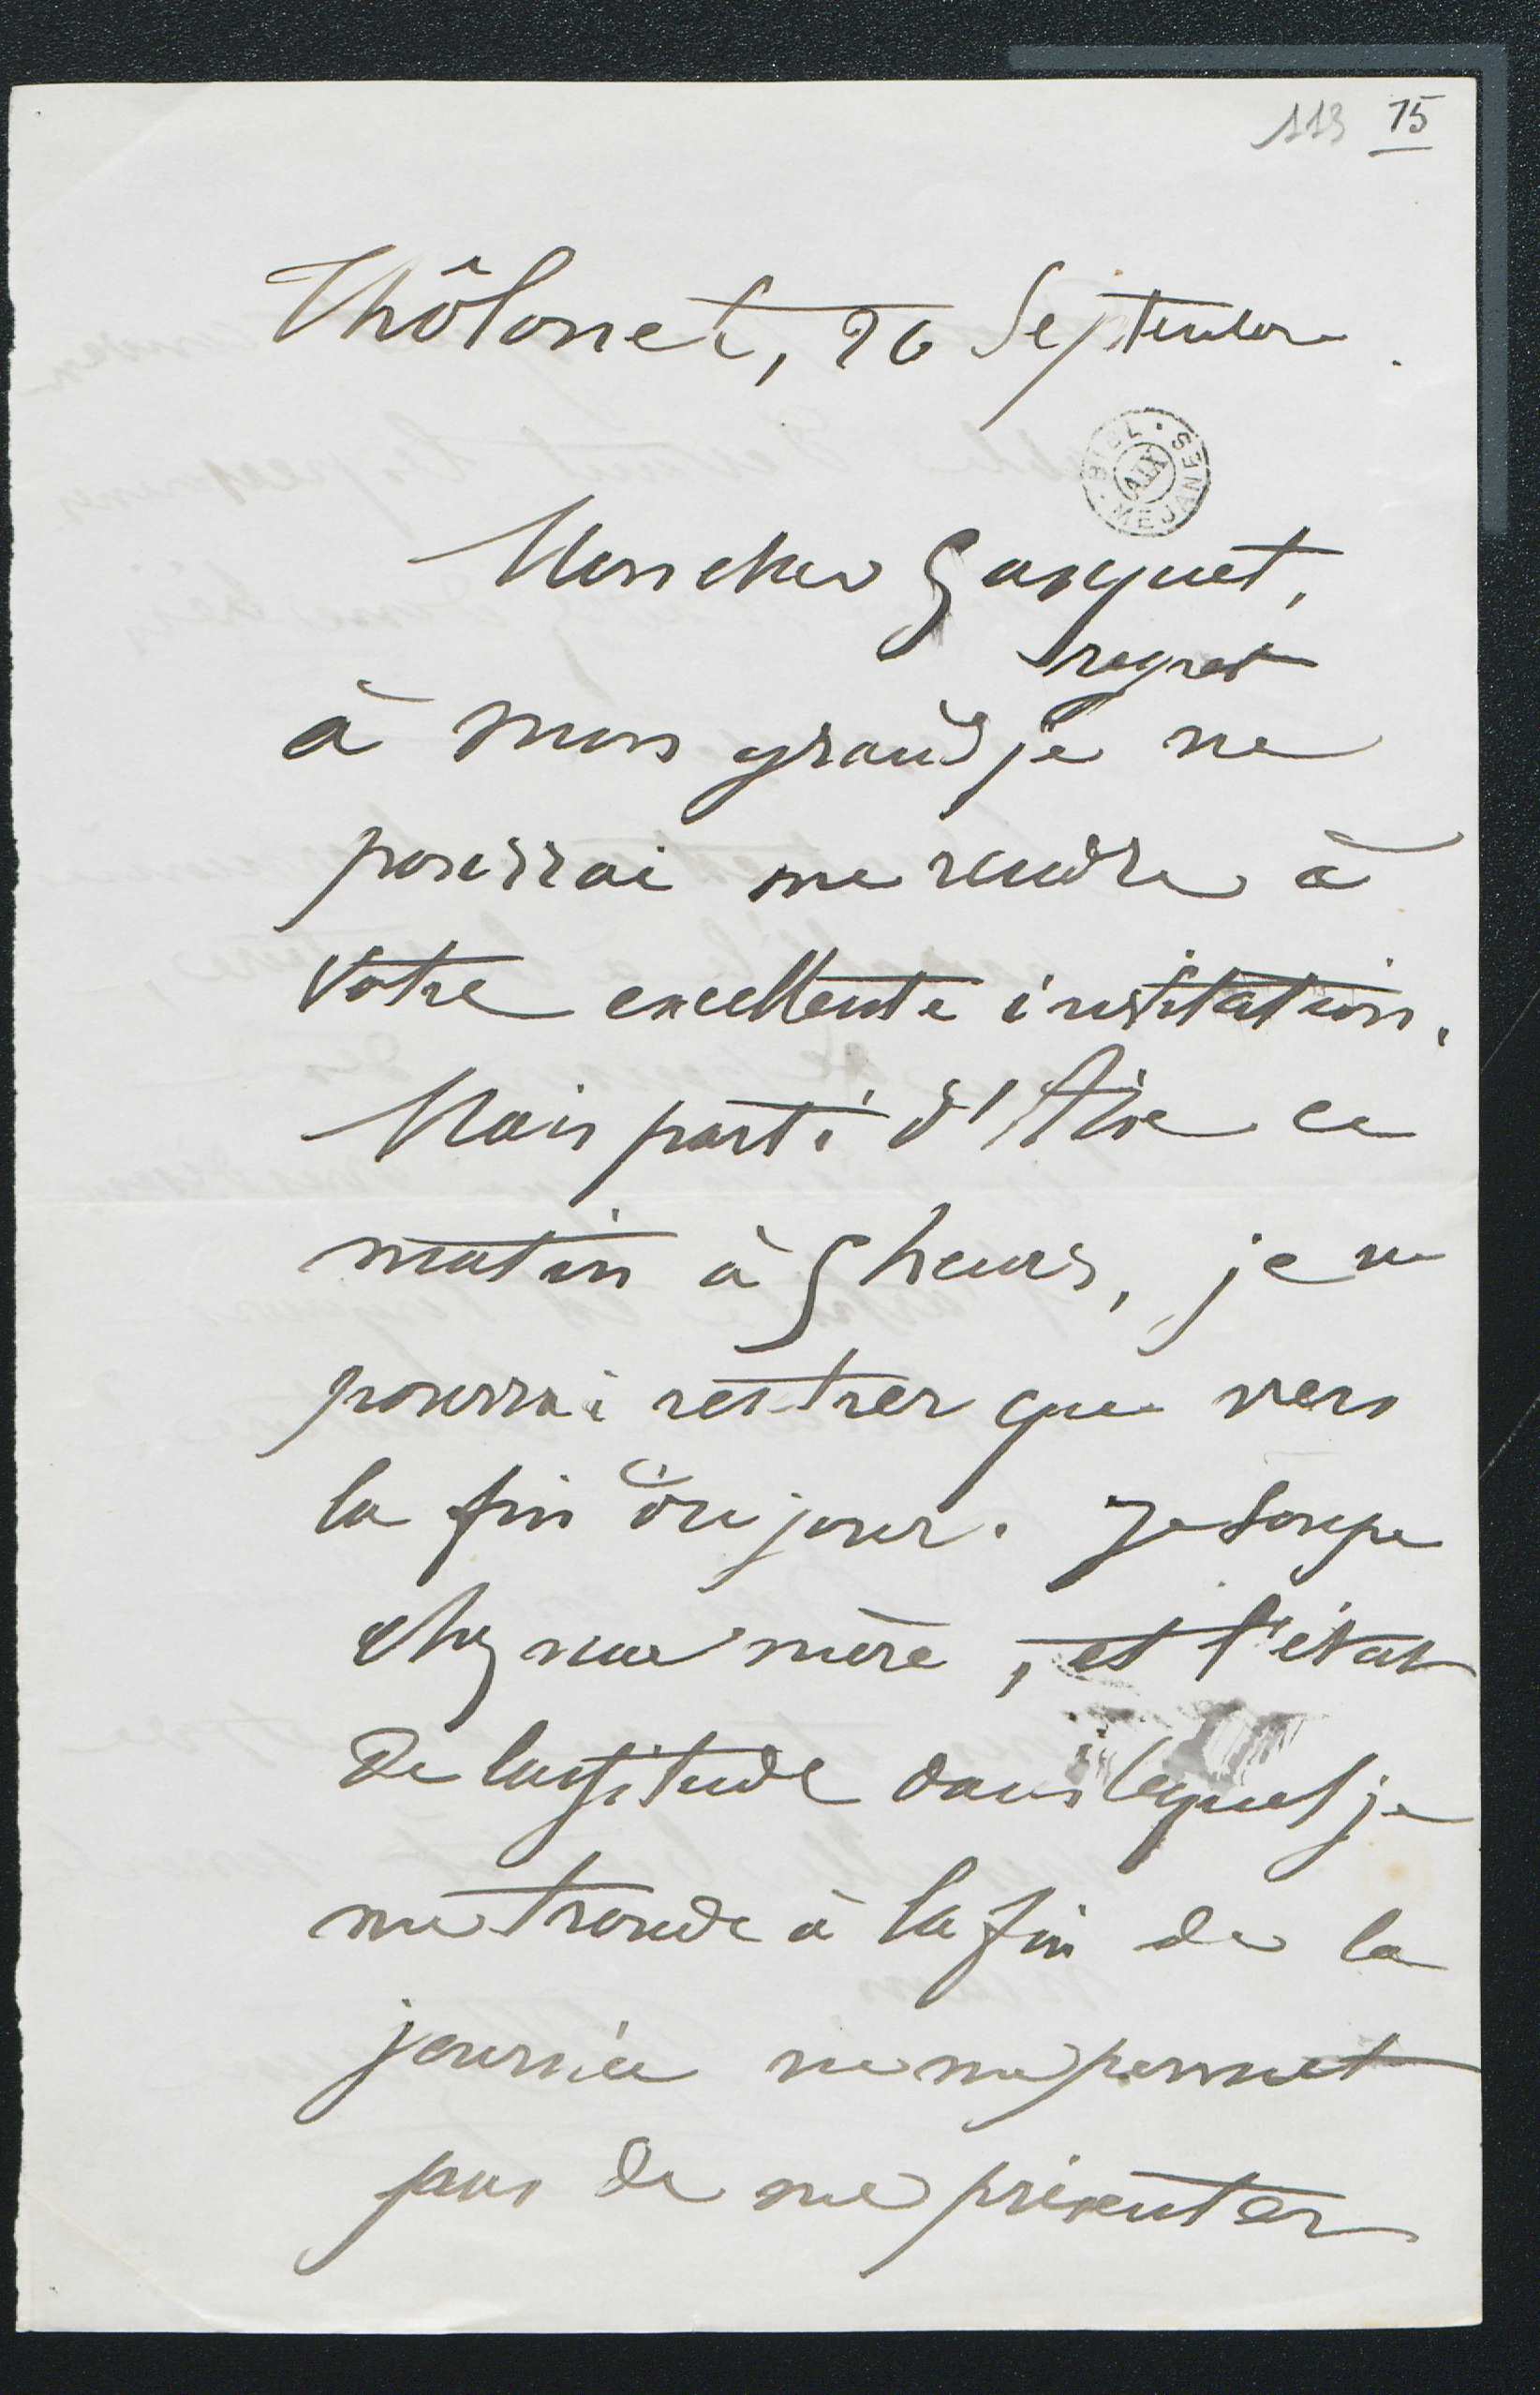 113 75
Thôlonet, 26 Septembre
BIBL. MEJANES AIX
Mon cher Gasquet,
regret
à mon grand je ne
pourrai me rendre à
votre excellente invitation.
Mais parti d'Aix ce
matin à 5 heures, je ne
pourrai rentrer que vers
la fin du jour. Je soupe
chez ma mère, et l'état
de lassitude dans lequel je
me trouve à la fin de la
journée ne me permet
pas de me présenter